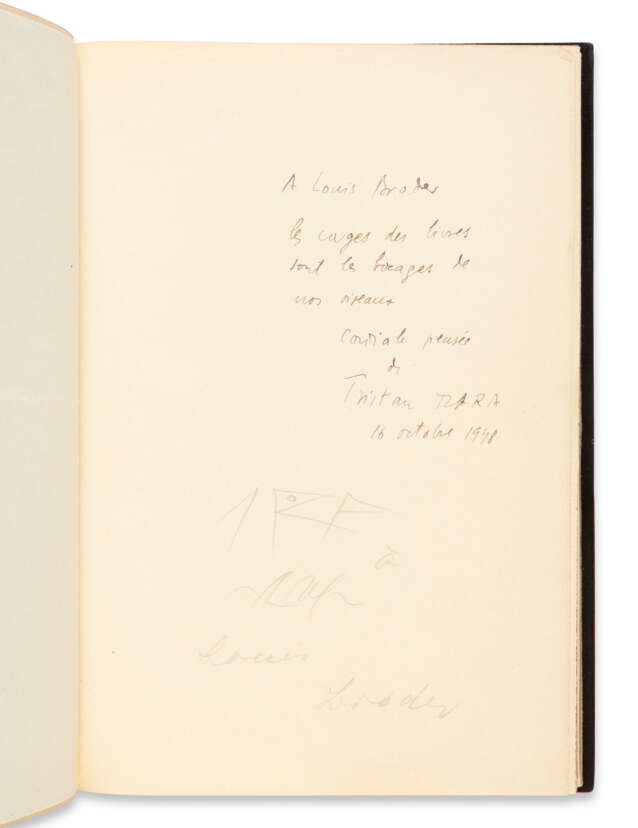 A Louis Broder
les cages des livres
sont les bocages de
nos oiseaux
Cordiale pensée
de
Tristan TZARA
16 octobre 1948
ARP
à
Louis
Broder